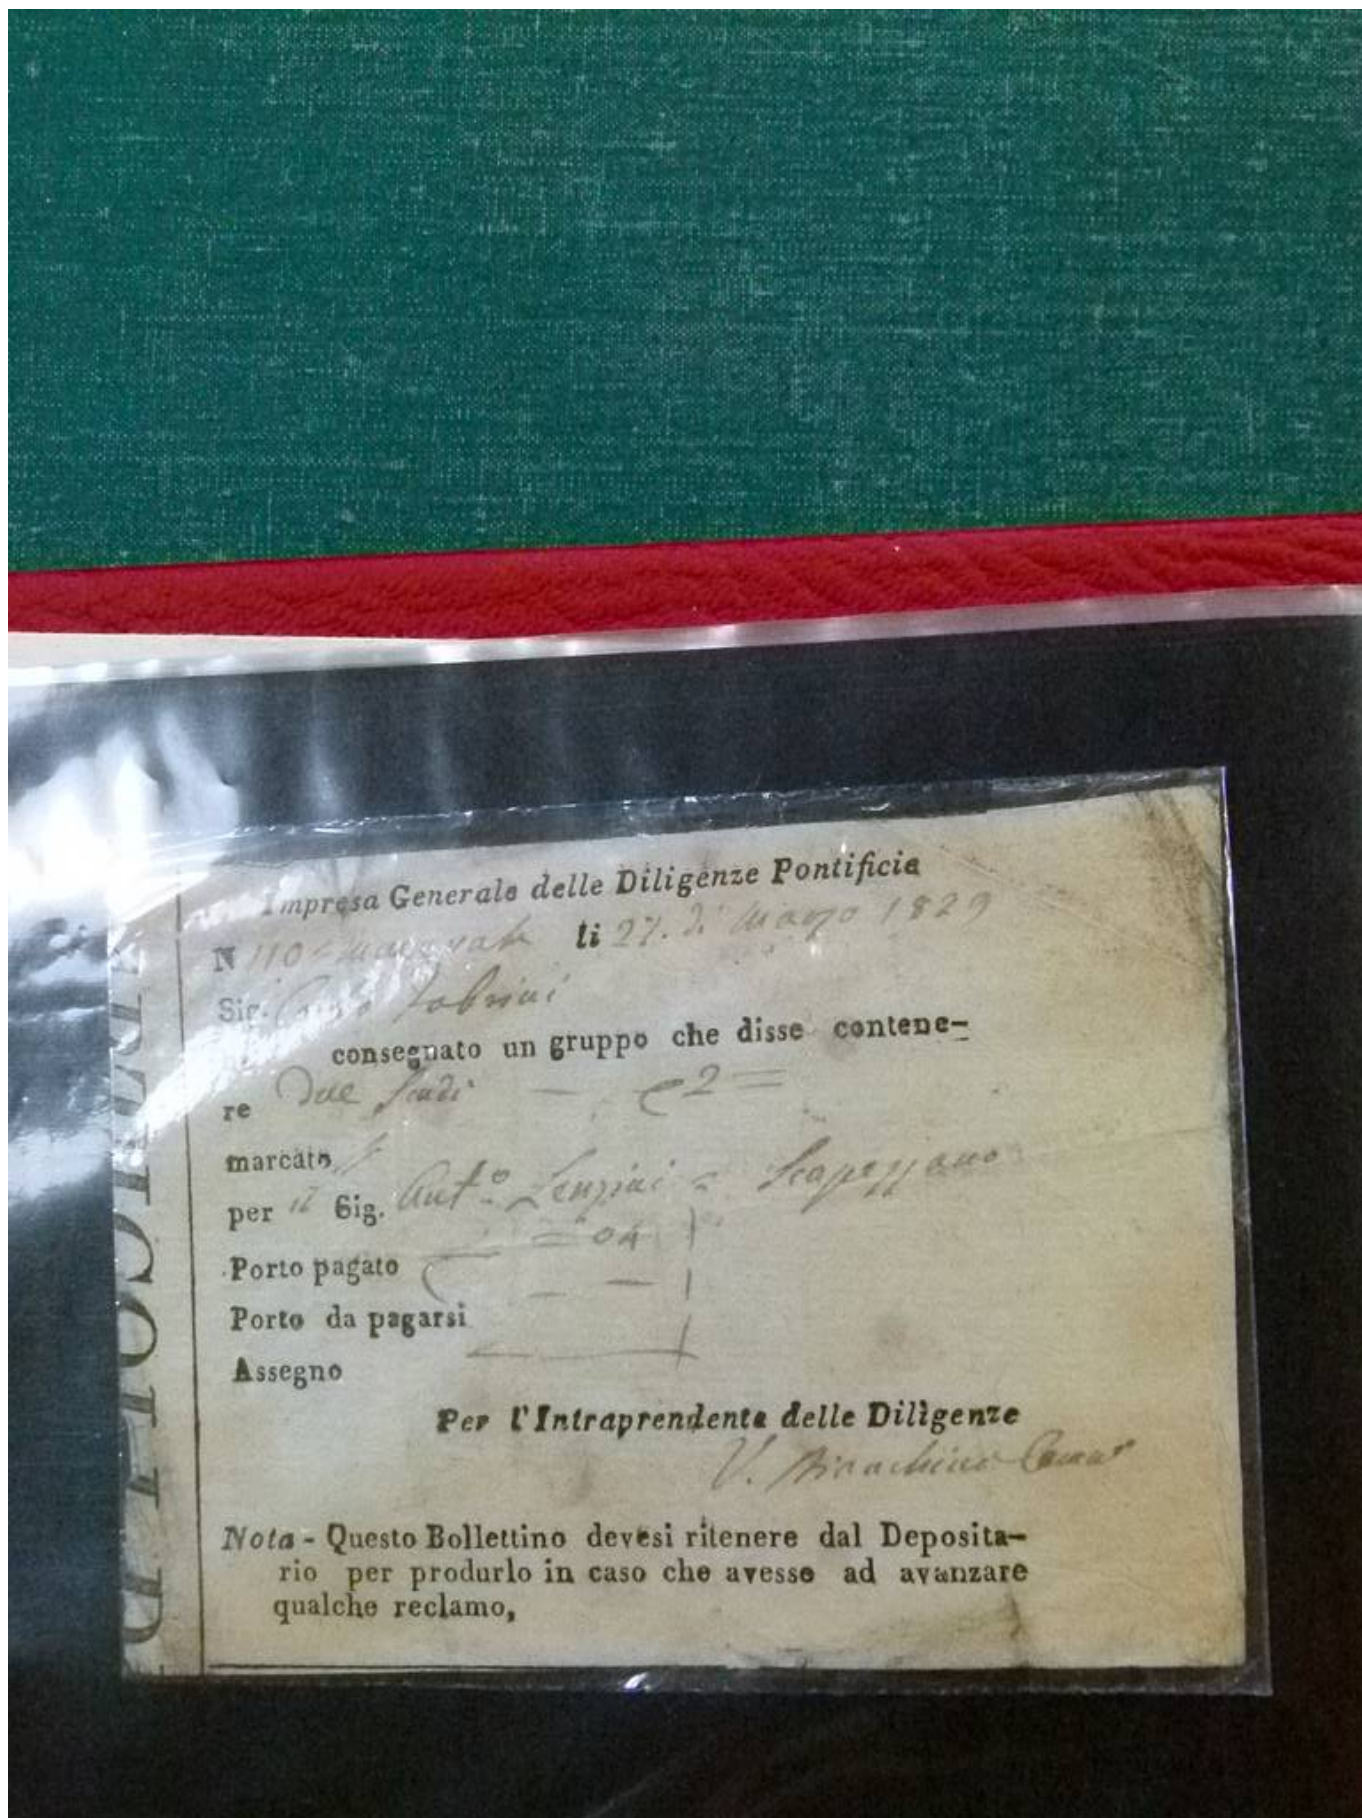 Impresa Generale delle Diligenze Pontificie
N 110 = Macerata li 27. di Marzo 1829
Sig. Fabrini
consegnato un gruppo che disse contene-
re Due Scudi — 2 =
marcato
per il Sig. Ant.o Lenzini = Scapezzano
= 04
Porto pagato
Porto da pagarsi
Assegno
Per l'Intraprendente delle Diligenze
V.
Nota - Questo Bollettino devesi ritenere dal Deposita-
rio per produrlo in caso che avesse ad avanzare
qualche reclamo,